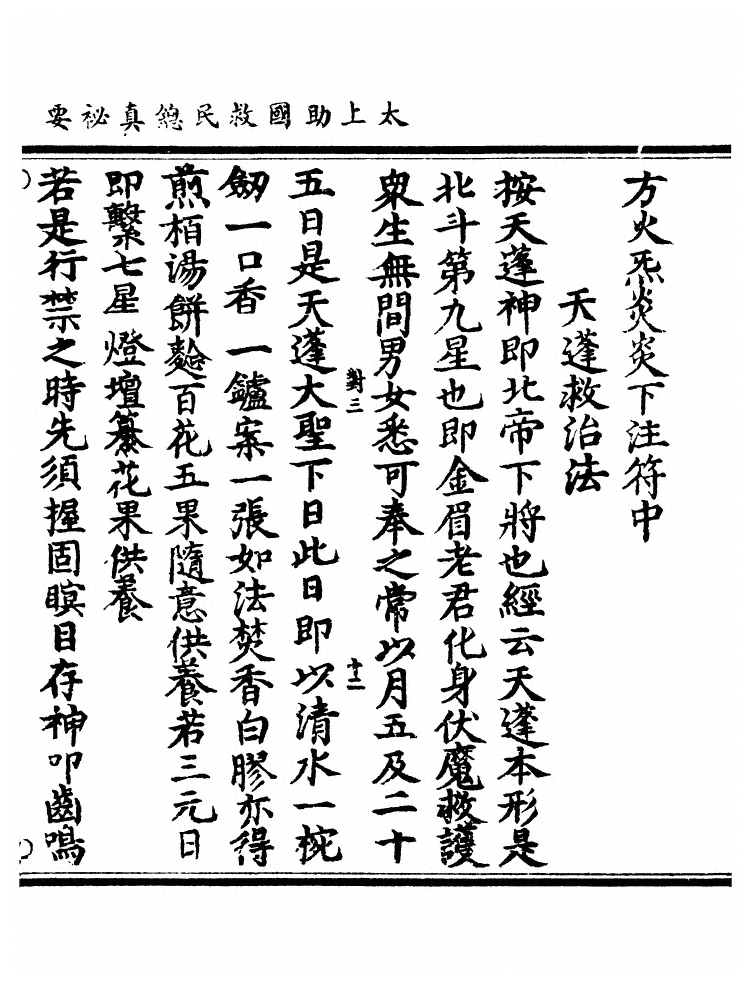 太上助國救民總真祕要
方火炁炎炎下注符中
天蓬救治法
按天蓬神即北帝下將也經云天蓬本形是
北斗第九星也即金眉老君化身伏魔救護
衆生無間男女悉可奉之常以月五及二十
對三
十二
五日是天蓬大聖下日此日即以清水一椀
劒一口香一鑪案一張如法焚香白膠亦得
煎栢湯餅麨百花五果隨意供養若三元日
即繫七星燈壇纂花果供養
若是行禁之時先須握固瞑目存神叩齒鳴